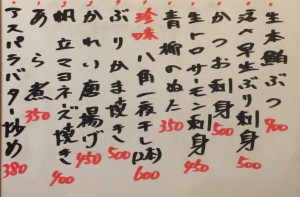 生本鮪ぶつ 700
活〆早生ぶり刺身 500
かつお刺身 500
生トロサーモン刺身 450
青柳のぬた 350
珍味 八角一夜干し(1本) 600
ぶりかま焼き 500
かれい唐揚げ 450
帆立マヨネーズ焼き 400
あら煮 350
アスパラバター炒め 380